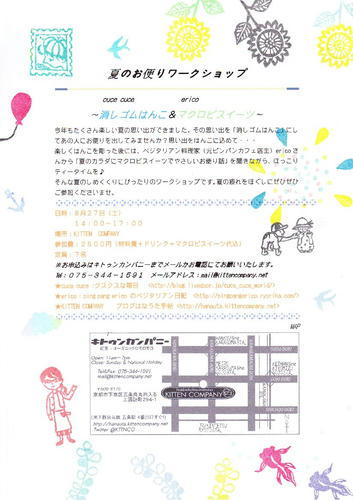 夏のお便りワークショップ
cuce cuce erico
~消しゴムはんこ&マクロビスイーツ~
今年もたくさん楽しい夏の思い出ができました。その思い出を「消しゴムはんこ」にし
てあの人にお便りを出してみませんか?思い出をはんこに込めて・・・
楽しくはんこを彫った後には、ベジタリアン料理家(元ピンパンカフェ店主)ericoさ
んから「夏のカラダにマクロビスイーツでやさしいお便り話」を聞きながら、ほっこり
ティータイムを♪
そんな夏のしめくくりにぴったりのワークショップです。夏の疲れをほぐしにぜひぜひ
ご参加くださいませ。
日時:8月27日(土)
14:00~17:00
場所:KITTEN COMPANY
参加費:2500円(材料費+ドリンク+マクロビスイーツ代込)
定員:7名
※お申込みはキトゥンカンパニーまでメールかお電話にてお願いいたします。
Tel:075-344-1591 メールアドレス:mail@kittencompany.net
★cuce cuce:クスクスな毎日 <http://blog.livedoor.jp/cuce_cuce_world/>
★erico:ping pang erico のベジタリアン日記
★KITTEN COMPANY ブログはなうた手帖 <http://hanauta.kittencompany.net/>
MAP
キトゥンカンパニー
Open 11am~7pm
Close: Sunday & National Holiday
Tel&Fax 075-344-1591
mail@kittencompany.net
KITTEN COMPANY
http://hanauta.kittencompany.net
Twitter @KTTNCO